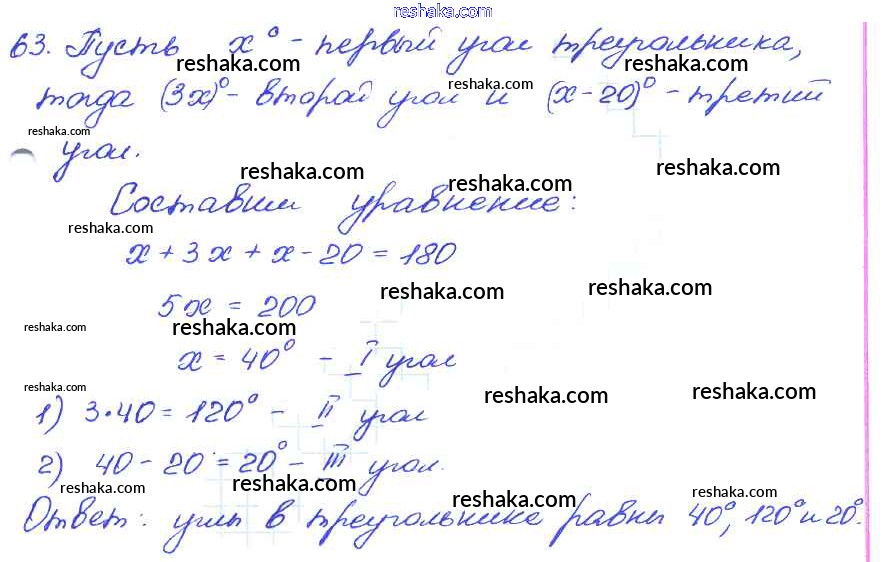 reshaka.com
63. Пусть x° - первый угол треугольника,
reshaka.com reshaka.com reshaka.com
тогда (3x)° - второй угол и (x-20)° - третий
reshaka.com
угол.
reshaka.com reshaka.com reshaka.com
Составим уравнение:
reshaka.com
x + 3x + x - 20 = 180
reshaka.com reshaka.com
5x = 200
reshaka.com reshaka.com
x = 40° - I угол
reshaka.com reshaka.com reshaka.com
1) 3·40 = 120° - II угол
2) 40 - 20 = 20° - III угол.
reshaka.com reshaka.com reshaka.com reshaka.com
Ответ: углы в треугольнике равны 40°, 120° и 20°.